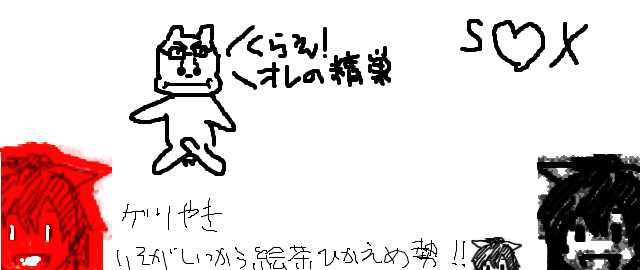 くらえ!
オレの精巣
S♡X
ゲリやき
いえがしつから絵茶ひかえめ勢!!